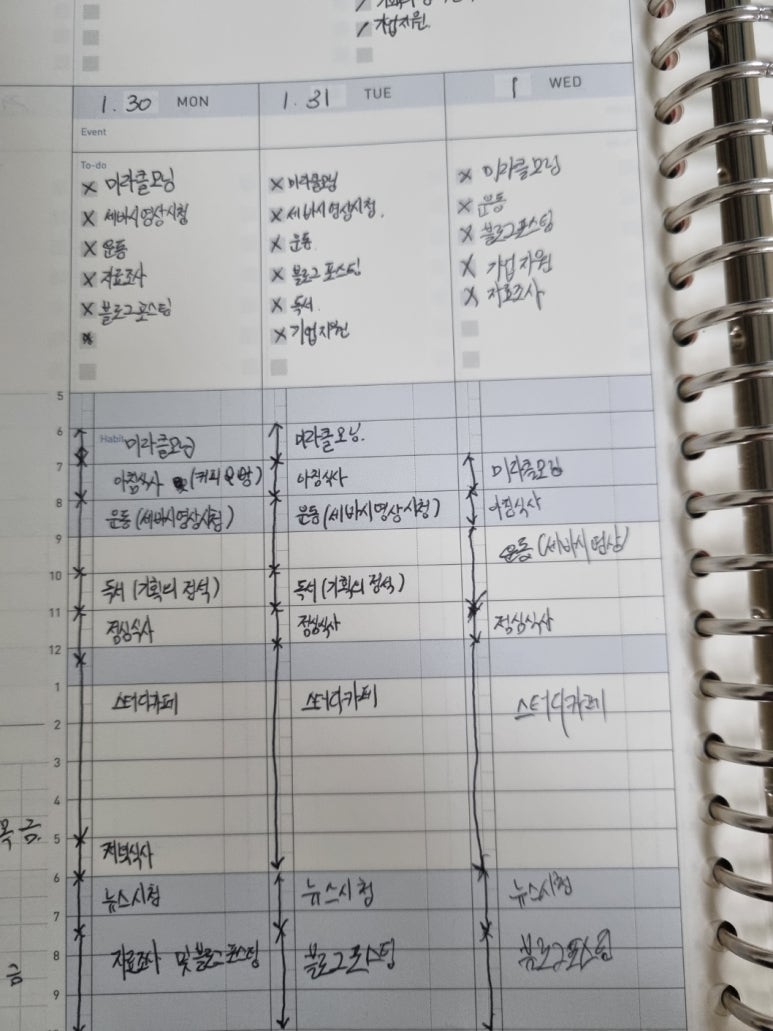 기업지원
1.30 MON
1.31 TUE
1 WED
Event
To-do
X 미라클모닝
X 세바시영상시청
X 운동
X 자료조사
X 블로그포스팅
X 미라클모닝
X 세바시영상시청.
X 운동.
X 블로그포스팅
X 독서.
X 기업지원
X 미라클모닝
X 운동
X 블로그포스팅
X 기업지원
X 자료조사
5
6
7
8
9
10
11
12
1
2
3
4
5
6
7
8
9
Habit
미라클모닝
아침식사 (커피
운동 (세바시영상시청)
독서 (기획의 정석)
점심식사
스터디카페
저녁식사
뉴스시청
자료조사 및 블로그포스팅
미라클모닝.
아침식사
운동 (세바시영상시청)
독서 (기획의 정석)
점심식사
스터디카페
뉴스시청
블로그포스팅
미라클모닝
아침식사
운동 (세바시영상)
점심식사
스터디카페
뉴스시청
블로그포스팅
목금.
금